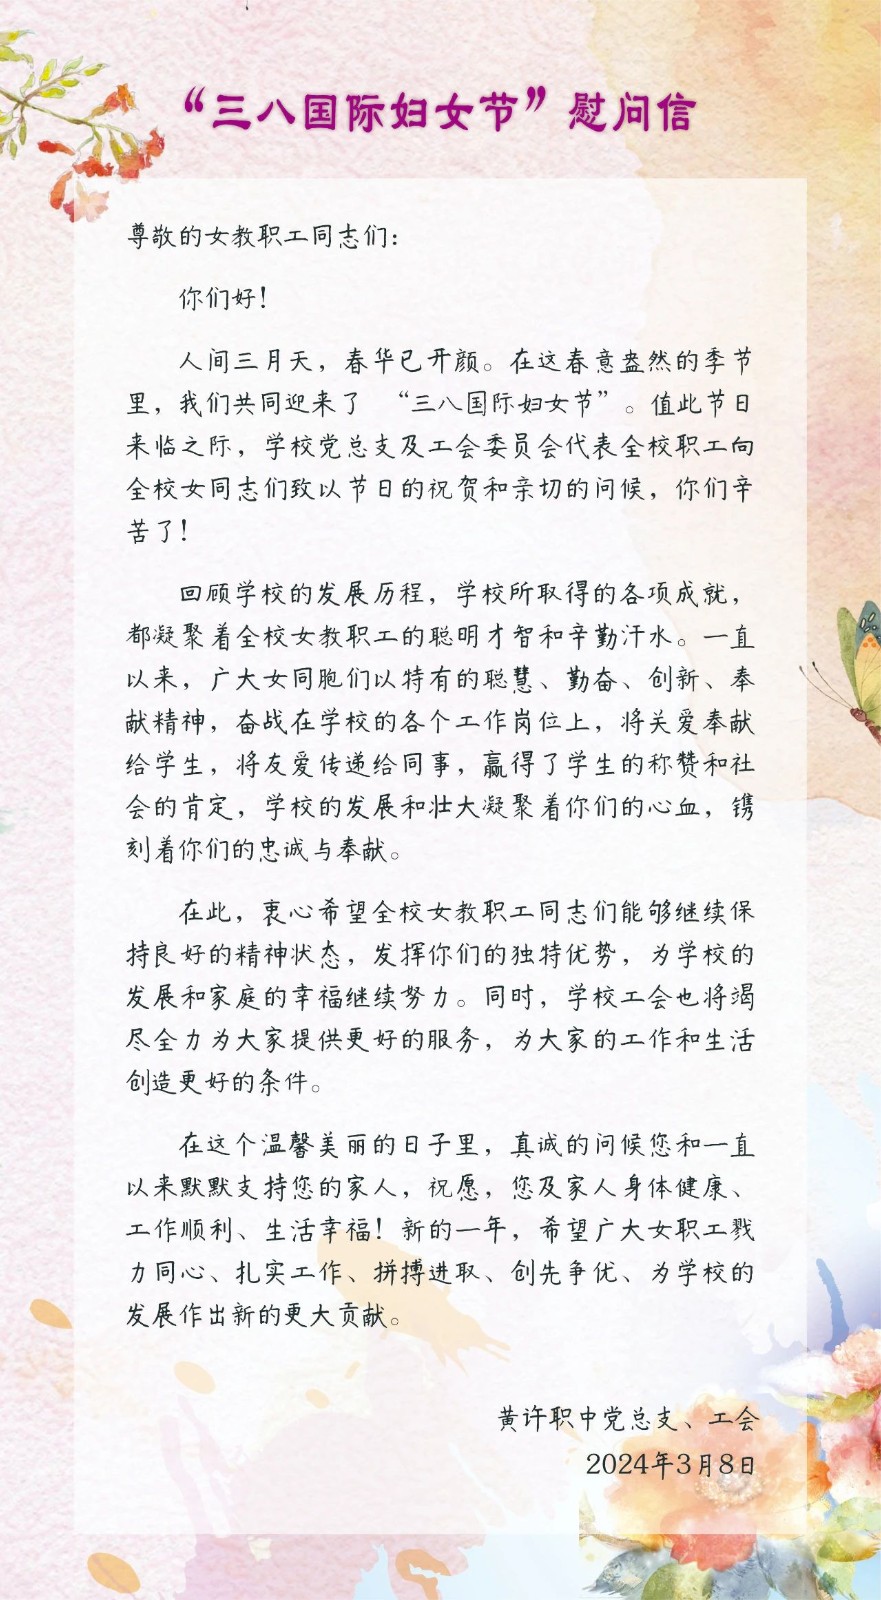 “三八国际妇女节”慰问信
尊敬的女教职工同志们：
你们好！
人间三月天，春华已开颜。在这春意盎然的季节
里，我们共同迎来了 “三八国际妇女节”。值此节日
来临之际，学校党总支及工会委员会代表全校职工向
全校女同志们致以节日的祝贺和亲切的问候，你们辛
苦了！
回顾学校的发展历程，学校所取得的各项成就，
都凝聚着全校女教职工的聪明才智和辛勤汗水。一直
以来，广大女同胞们以特有的聪慧、勤奋、创新、奉
献精神，奋战在学校的各个工作岗位上，将关爱奉献
给学生，将友爱传递给同事，赢得了学生的称赞和社
会的肯定，学校的发展和壮大凝聚着你们的心血，镌
刻着你们的忠诚与奉献。
在此，衷心希望全校女教职工同志们能够继续保
持良好的精神状态，发挥你们的独特优势，为学校的
发展和家庭的幸福继续努力。同时，学校工会也将竭
尽全力为大家提供更好的服务，为大家的工作和生活
创造更好的条件。
在这个温馨美丽的日子里，真诚的问候您和一直
以来默默支持您的家人，祝愿，您及家人身体健康、
工作顺利、生活幸福！新的一年，希望广大女职工戮
力同心、扎实工作、拼搏进取、创先争优、为学校的
发展作出新的更大贡献。
黄许职中党总支、工会
2024年3月8日